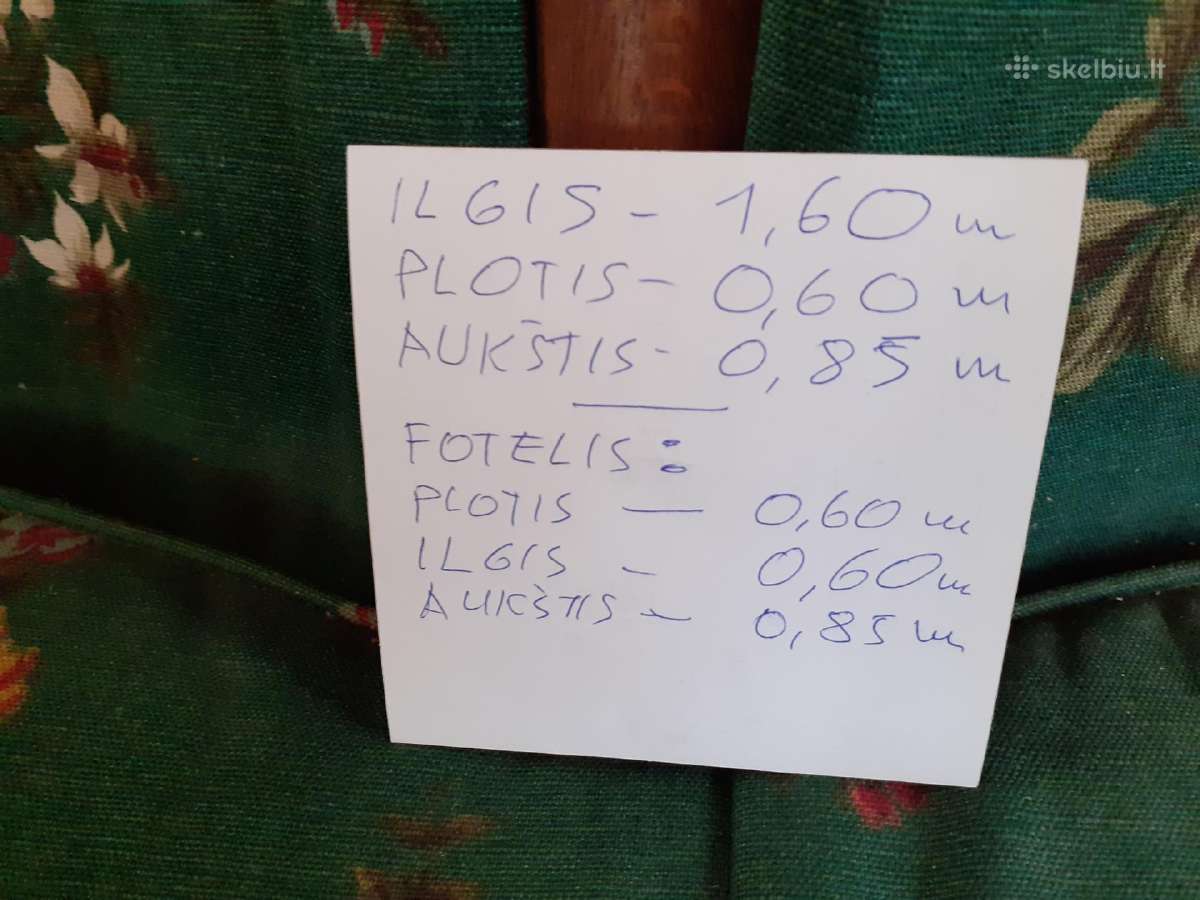 skelbiu.lt
ILGIS - 1,60 m
PLOTIS - 0,60 m
AUKŠTIS - 0,85 m
FOTELIS:
PLOTIS — 0,60 m
ILGIS - 0,60 m
AUKŠTIS - 0,85 m